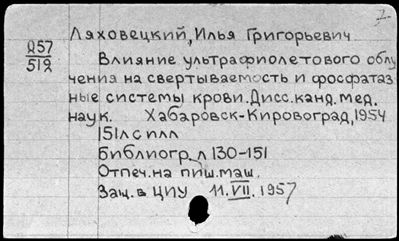 Ляховецкий, Илья Григорьевич
Д57
512
Влияние ультрафиолетового облу
чения на свертываемость и фосфатаз
ные системы крови. Дисс. канд. мед.
наук. Хабаровск-Кировоград, 1954
151л с илл
Библиогр. л 130-151
Отпеч. на пиш. маш.
Защ. в ЦИУ 11.VII.1957